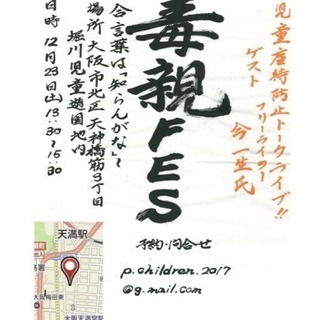 児童虐待防止トークライブ!!
ゲスト
フリーライター
今一生氏
毒親FES
合言葉は「知らんがな」
場所 大阪市北区天神橋筋3丁目
堀川児童遊園地内
日時 12月23日(土)13:30~15:30
予約・問合せ
p.children.2017
@g.mail.com
天満駅